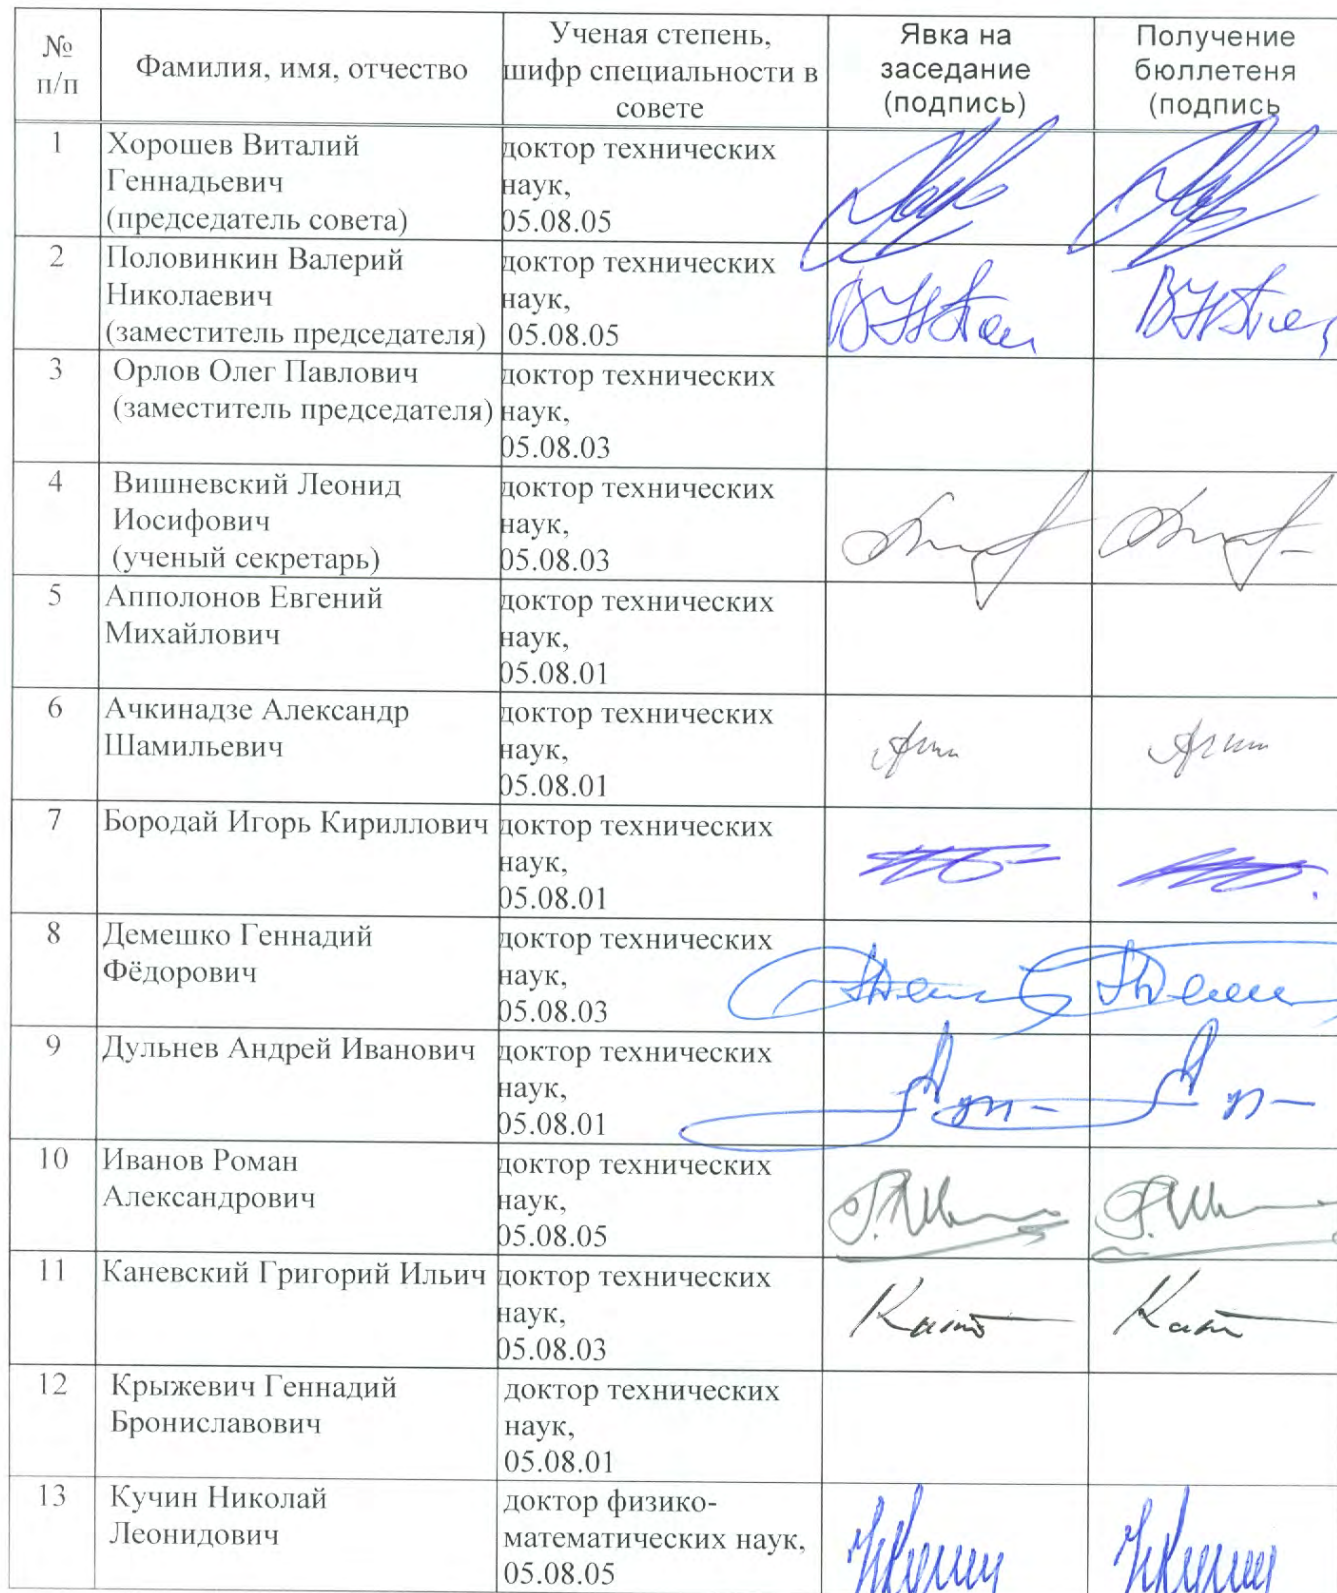 № п/п
Фамилия, имя, отчество
Ученая степень,
шифр специальности в
совете
Явка на
заседание
(подпись)
Получение
бюллетеня
(подпись
1
Хорошев Виталий
Геннадьевич
(председатель совета)
доктор технических
наук,
05.08.05
2
Половинкин Валерий
Николаевич
(заместитель председателя)
доктор технических
наук,
05.08.05
3
Орлов Олег Павлович
(заместитель председателя)
доктор технических
наук,
05.08.03
4
Вишневский Леонид
Иосифович
(ученый секретарь)
доктор технических
наук,
05.08.03
5
Апполонов Евгений
Михайлович
доктор технических
наук,
05.08.01
6
Ачкинадзе Александр
Шамильевич
доктор технических
наук,
05.08.01
7
Бородай Игорь Кириллович
доктор технических
наук,
05.08.01
8
Демешко Геннадий
Фёдорович
доктор технических
наук,
05.08.03
9
Дульнев Андрей Иванович
доктор технических
наук,
05.08.01
10
Иванов Роман
Александрович
доктор технических
наук,
05.08.05
11
Каневский Григорий Ильич
доктор технических
наук,
05.08.03
12
Крыжевич Геннадий
Брониславович
доктор технических
наук,
05.08.01
13
Кучин Николай
Леонидович
доктор физико-
математических наук,
05.08.05